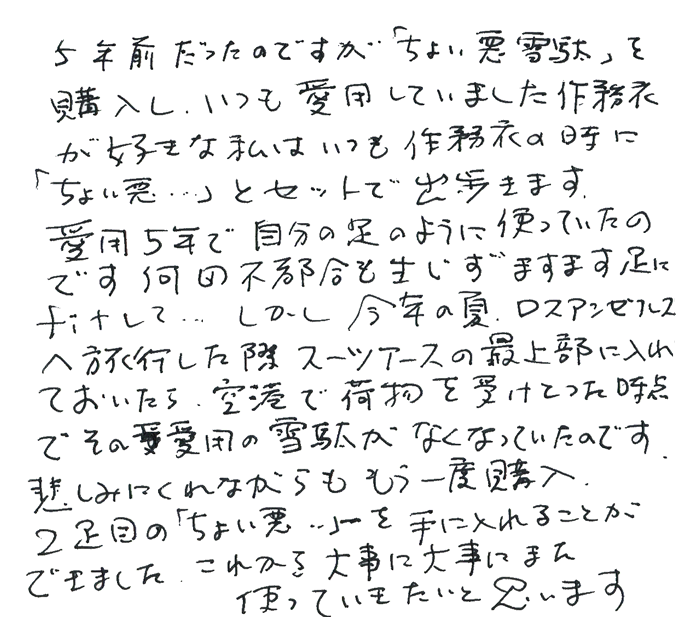 5年前だったのですが「ちょい悪雪駄」を
購入し、いつも愛用していました作務衣
が好きな私はいつも作務衣の時に
「ちょい悪…」とセットで出歩きます。
愛用5年で自分の足のように使っていたの
です何の不都合も生じずますます足に
fitして… しかし今年の夏、ロスアンゼルス
へ旅行した際スーツケースの最上部に入れ
ておいたら、空港で荷物を受けとった時点
でその愛用の雪駄がなくなっていたのです。
悲しみにくれながらももう一度購入。
2足目の「ちょい悪…」を手に入れることが
できました。これから大事に大事にまた
使っていきたいと思います